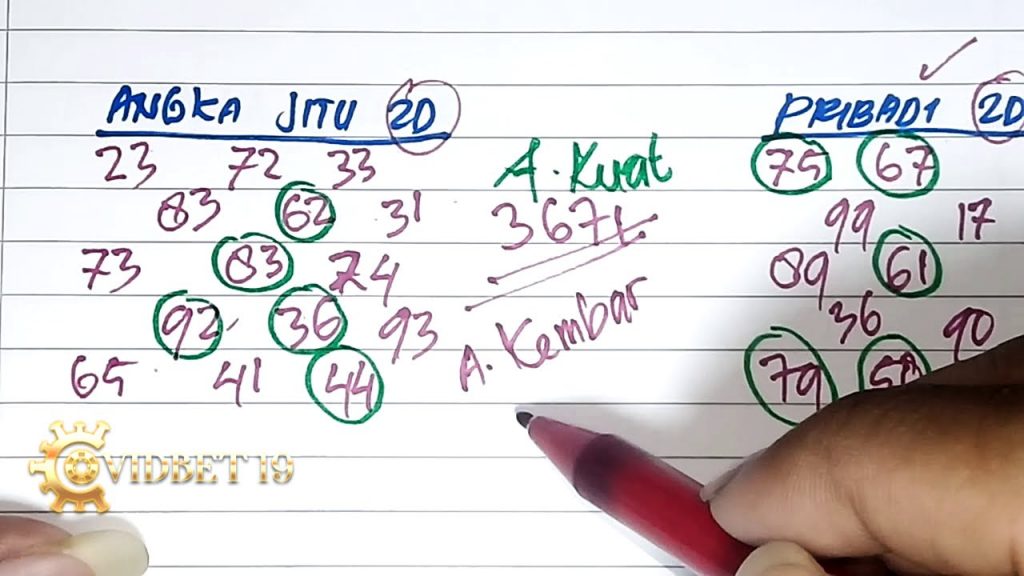 ANGKA JITU 2D
23 72 33
83 62 31
73 83 74
92 36 93
65 41 44
A. Kuat
3671
A. Kembar
PRIBADI 2D
75 67
99 17
89 61
36 90
79
COVIDBET 19